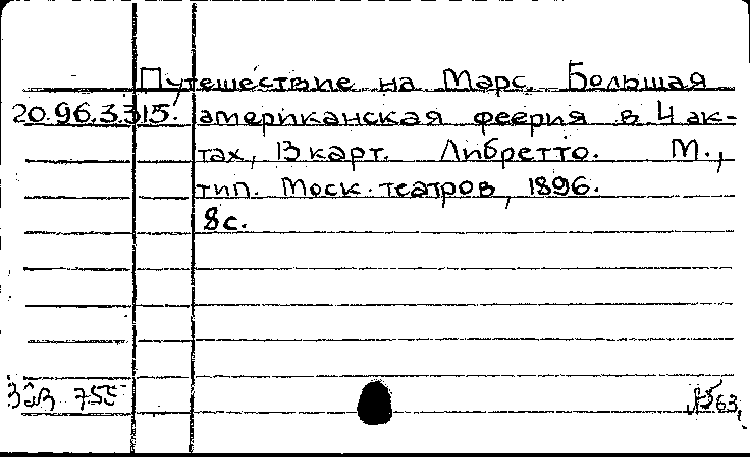 Путешествие на Марс. Большая
20.96.3.315. американская феерия в 4 ак-
тах, 13 карт. Либретто. М.,
тип. Моск. театров, 1896.
8с.
755
63